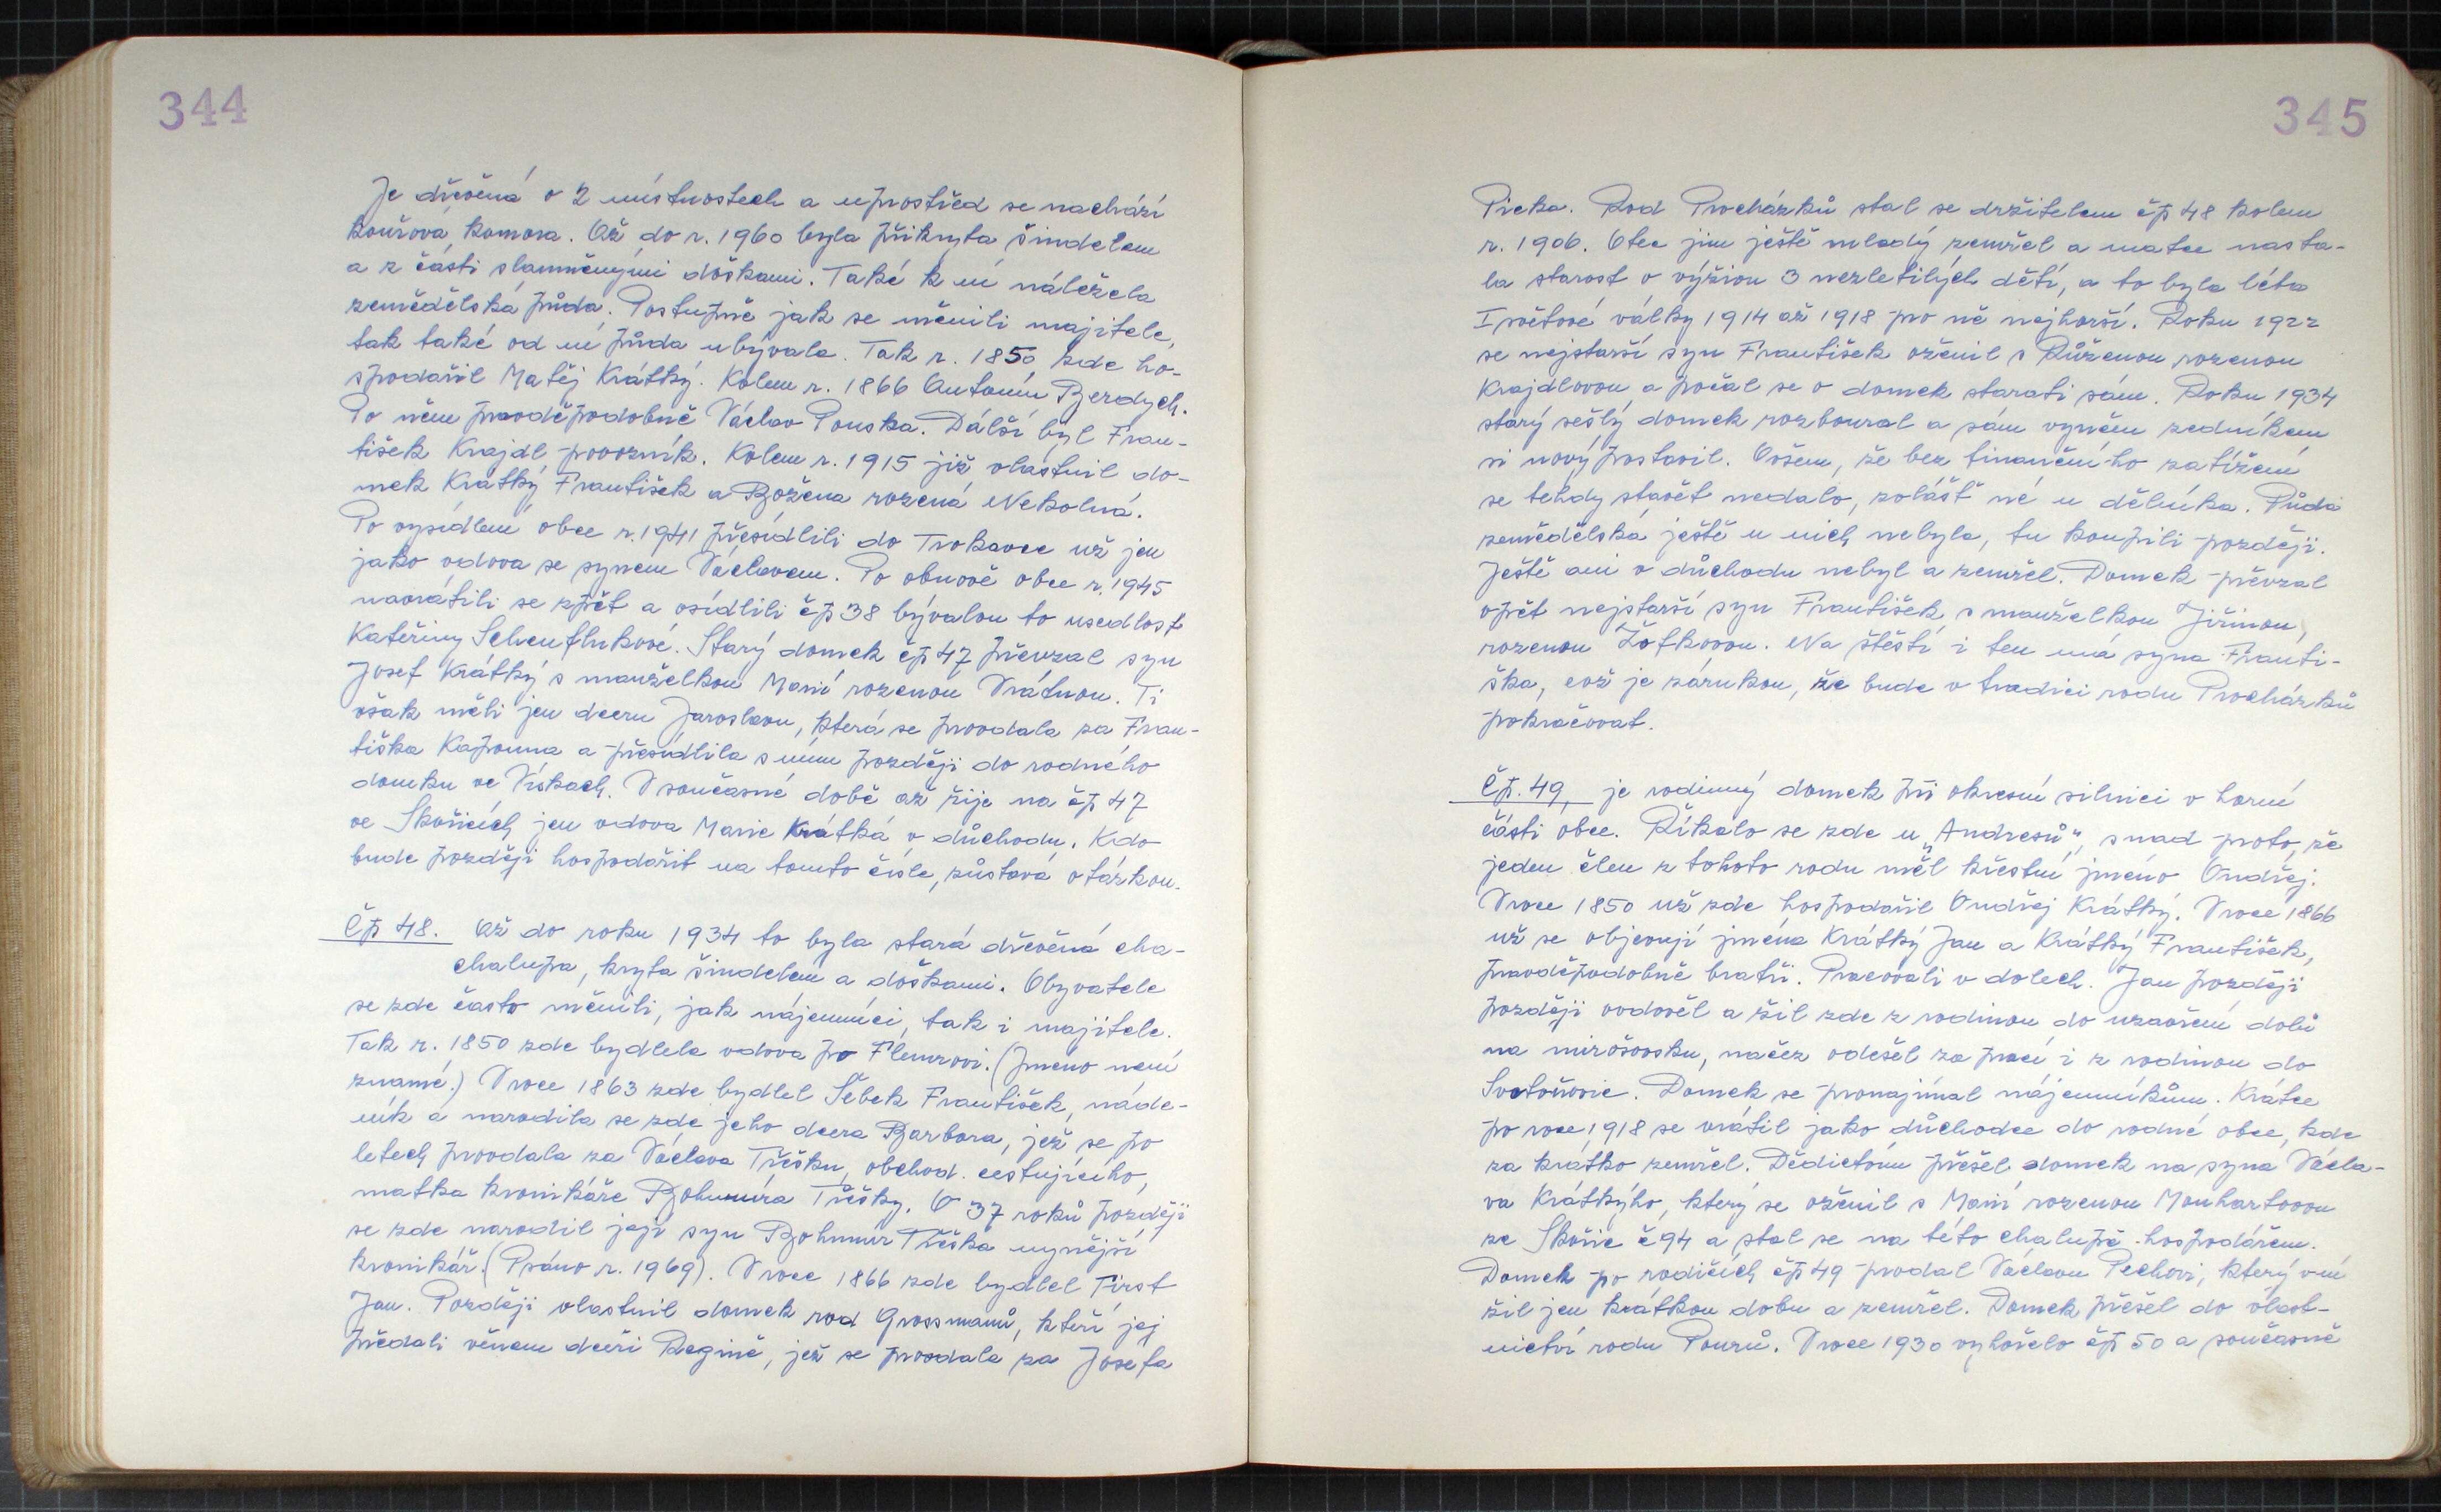 344
Je dřevěná o 2 místnostech a uprostřed se nachází
kouřová komora. Až do r. 1960 byla přikryta šindelem
a z části slaměnými doškami. Také k ní náležela
zemědělská půda. Postupně jak se měnili majitele,
tak také od ní půda ubývala. Tak r. 1850 zde ho-
spodařil Matěj Krátký. Kolem r. 1866 Antonín Berdych.
Po něm pravděpodobně Václav Pouska. Dálší byl Fran-
tišek Krajdl povozník. Kolem r. 1915 již vlastnil do-
mek Krátký František a Božena rozená Nekolná.
Po vysídlení obce r. 1941 přesídlili do Trokavce už jen
jako vdova se synem Václavem. Po obnově obce r. 1945
navrátili se zpět a osídlili čp 38 bývalou to usedlost
Kateřiny Schenflukové. Starý domek čp 47 převzal syn
Josef Krátký s manželkou Marií rozenou Vrátnou. Ti
však měli jen dceru Jaroslavu, která se provdala za Fran-
tiška Kapouna a přesídlila s ním později do rodného
domku ve Vískách. V současné době až žije na čp 47
ve Skořicích jen vdova Marie Krátká v důchodu. Kdo
bude později hospodařit na tomto čísle, zůstává otázkou.
Čp 48. Až do roku 1934 to byla stará dřevěná cha-
chalupa, kryta šindelem a doškami. Obyvatele
se zde často měnili, jak nájemníci, tak i majitele.
Tak r. 1850 zde bydlela vdova po Flemrovi. (Jmeno není
znamé.) V roce 1863 zde bydlel Šebek František, náde-
ník a narodila se zde jeho dcera Barbora, jež se po
letech provdala za Václava Třešku, obchod. cestujícího,
matka kronikáře Bohumíra Třešky. O 37 roků později
se zde narodil její syn Bohumír Třeška nynější
kronikář. (Psáno r. 1969). V roce 1866 zde bydlel First
Jan. Později vlastnil domek rod Grossmanů, kteří jej
předali věnem dceři Regině, jež se provdala za Josefa
345
Picka. Rod Procházků stal se držitelem čp 48 kolem
r. 1906. Otec jim ještě mladý zemřel a matce nasta-
la starost o výživu 3 nezletilých dětí, a to byla léta
I světové války 1914 až 1918 pro ně nejhorší. Roku 1922
se nejstarší syn František oženil s Růženou rozenou
Krajdlovou a počal se o domek starati sám. Roku 1934
starý sešlý domek rozboural a sám vyučen zedníkem
si nový postavil. Ovšem, že bez finančního zatížení
se tehdy stavět nedalo, zolášť né u dělníka. Půda
zemědělská ještě u nich nebyla, tu koupili později.
Ještě ani v důchodu nebyl a zemřel. Domek převzal
opět nejstarší syn František s manželkou Jiřinou,
rozenou Žofkovou. Na štěstí i ten má syna Franti-
ška, což je zárukou, že bude v tradici rodu Procházků
pokračovat.
Čp. 49, je rodinný domek při okresní silnici v horní
části obce. Říkalo se zde u „Andresů", snad proto, že
jeden člen z tohoto rodu měl křestní jméno Ondřej.
V roce 1850 už zde hospodařil Ondřej Krátký. V roce 1866
už se objevují jména Krátký Jan a Krátký František,
pravděpodobně bratři. Pracovali v dolech. Jan později
později ovdověl a žil zde z rodinou do uzavření dolů
na mirošovsku, načež odešel za prací i z rodinou do
Svatoňovic. Domek se pronajímal nájemníkům. Krátce
po roce 1918 se vrátil jako důchodce do rodné obce, kde
za krátko zemřel. Dědictvím přešel domek na syna Václa-
va Krátkýho, který se oženil s Marií rozenou Monhartovou
ze Skořic č 94 a stal se na této chalupě hospodářem.
Domek po rodičích čp 49 prodal Václavu Pechovi, který v ní
žil jen krátkou dobu a zemřel. Domek přešel do vlast-
nictví rodu Pourů. V roce 1930 vyhořelo čp 50 a současně